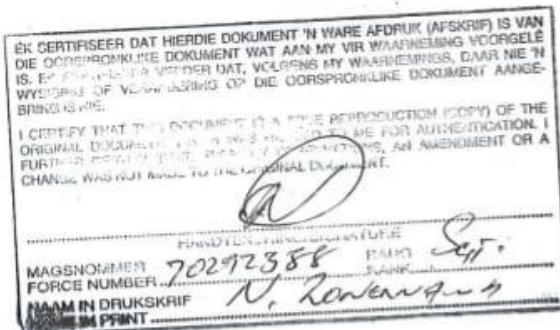 EK SERTIFISEER DAT HIERDIE DOKUMENT 'N WARE AFDRUK (AFSKRIF) IS VAN
DIE OORSPRONKLIKE DOKUMENT WAT AAN MY VIR WAARNEMING VOORGELÊ
IS. EK VERDER DAT, VOLGENS MY WAARNEMINGS, DAAR NIE 'N
WYSIGING OF VERANDERING OP DIE OORSPRONKLIKE DOKUMENT AANGE-
BRING IS NIE.
I CERTIFY THAT THIS DOCUMENT IS A TRUE REPRODUCTION (COPY) OF THE
ORIGINAL DOCUMENT TO ME FOR AUTHENTICATION. I
FURTHER AN AMENDMENT OR A
CHANGE WAS NOT MADE TO THE ORIGINAL DOCUMENT.
HANDTEKENING/SIGNATURE
MAGSNOMMER RANG
FORCE NUMBER 70292388 RANK Sgt.
NAAM IN DRUKSKRIF N.
IN PRINT